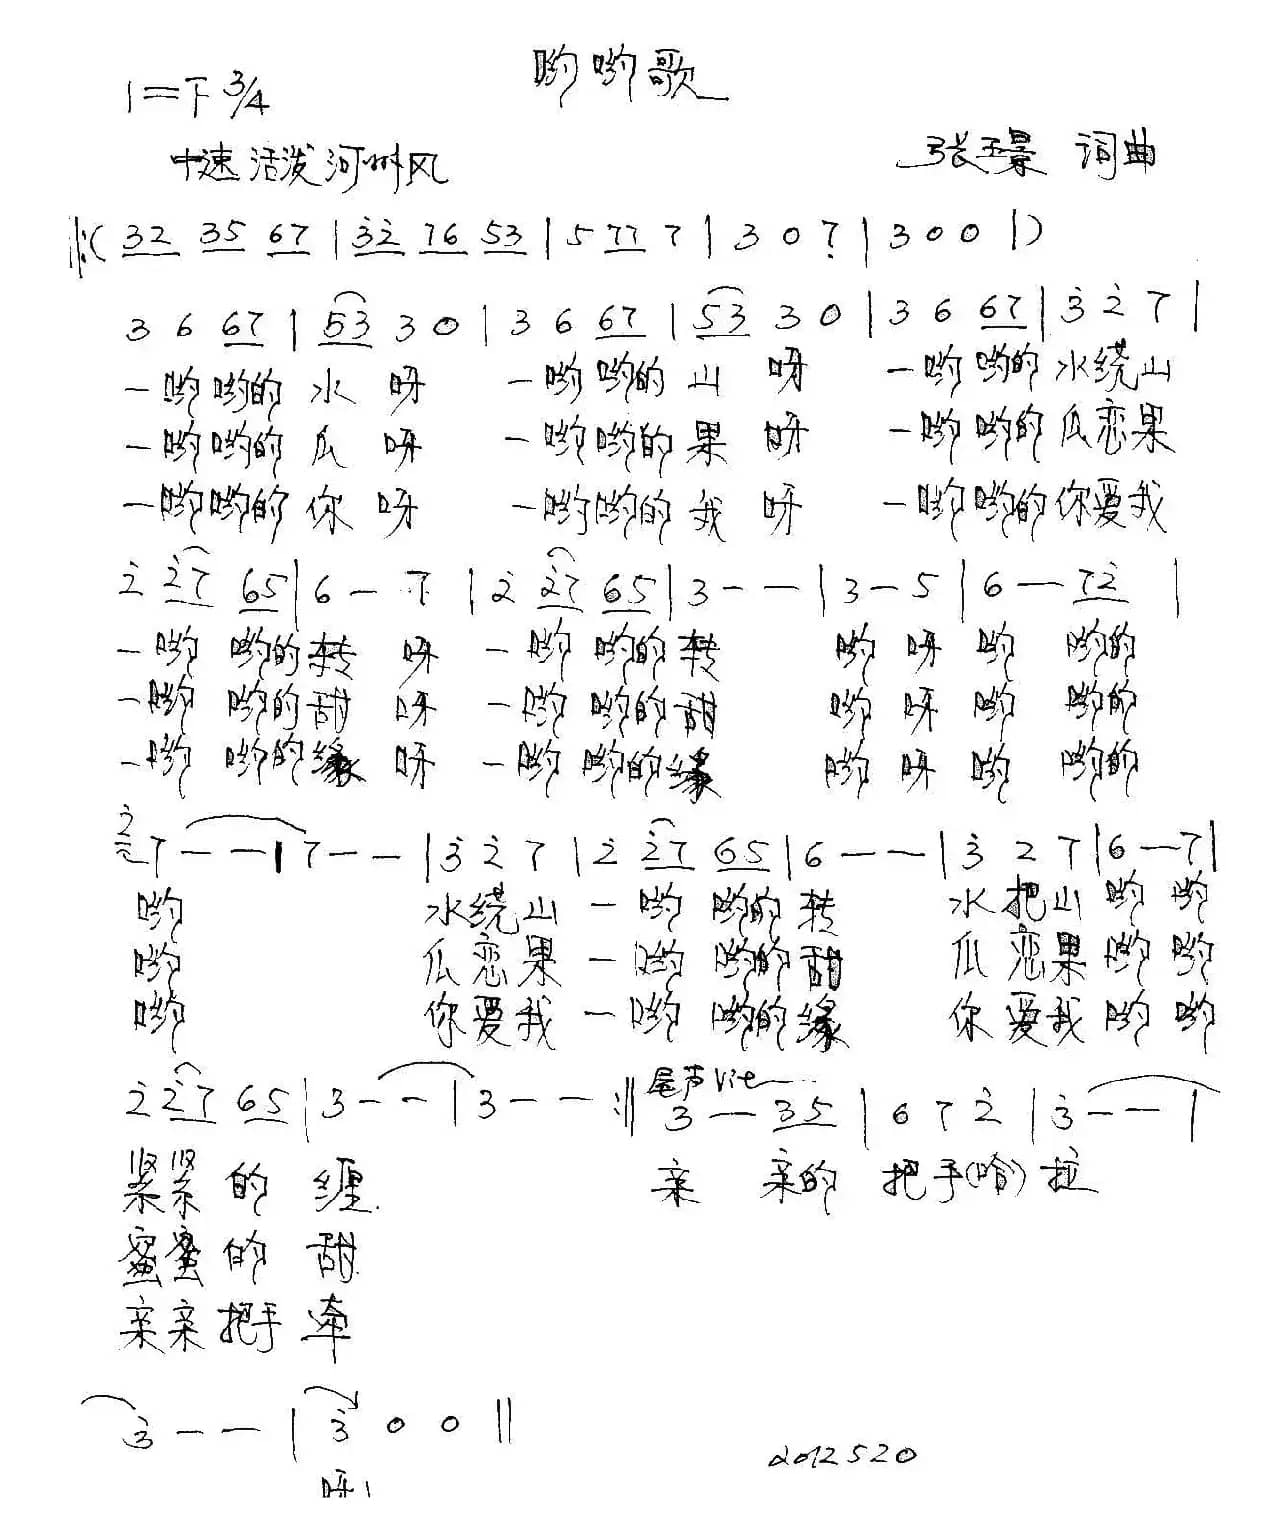 哟哟歌
1=下 3/4
中速 活泼 河州风
张玉景 词曲
‖:( 32 35 67 | 3̇2̇ 76 53 | 5 77 7 | 3 0 7̣ | 3 0 0 | )
3 6 67 | 53 3 0 | 3 6 67 | 53 3 0 | 3 6 67 | 3̇ 2̇ 7 |
一哟哟的 水 呀 一哟哟的 山 呀 一哟哟的 水绕山
一哟哟的 瓜 呀 一哟哟的 果 呀 一哟哟的 瓜恋果
一哟哟的 你 呀 一哟哟的 我 呀 一哟哟的 你爱我
2̇ 2̇7 65 | 6 — 7 | 2̇ 2̇7 65 | 3 — — | 3 — 5 | 6 — 72̇ |
一哟 哟的转 呀 一哟 哟的转 哟 呀 哟 哟的
一哟 哟的甜 呀 一哟 哟的甜 哟 呀 哟 哟的
一哟 哟的缘 呀 一哟 哟的缘 哟 呀 哟 哟的
2̇ 7 — — | 7 — — | 3̇ 2̇ 7 | 2̇ 2̇7 65 | 6 — — | 3̇ 2 7 | 6 — 7 |
哟 水绕山 一哟 哟的转 水把山 哟 哟
哟 瓜恋果 一哟 哟的甜 瓜恋果 哟 哟
哟 你爱我 一哟 哟的缘 你爱我 哟 哟
2̇ 2̇7 65 | 3 — — | 3 — — :‖ 尾声 Vit
3 — 35 | 6 7 2̇ | 3̇ — — |
紧紧 的 缠 亲 亲的 把手(哈)拉
蜜蜜 的 甜
亲亲 把手 牵
3̇ — — | 3̇ 0 0 ‖
呀!
2012520